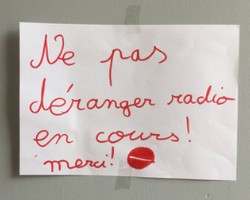 Ne pas
déranger radio
en cours!
merci!